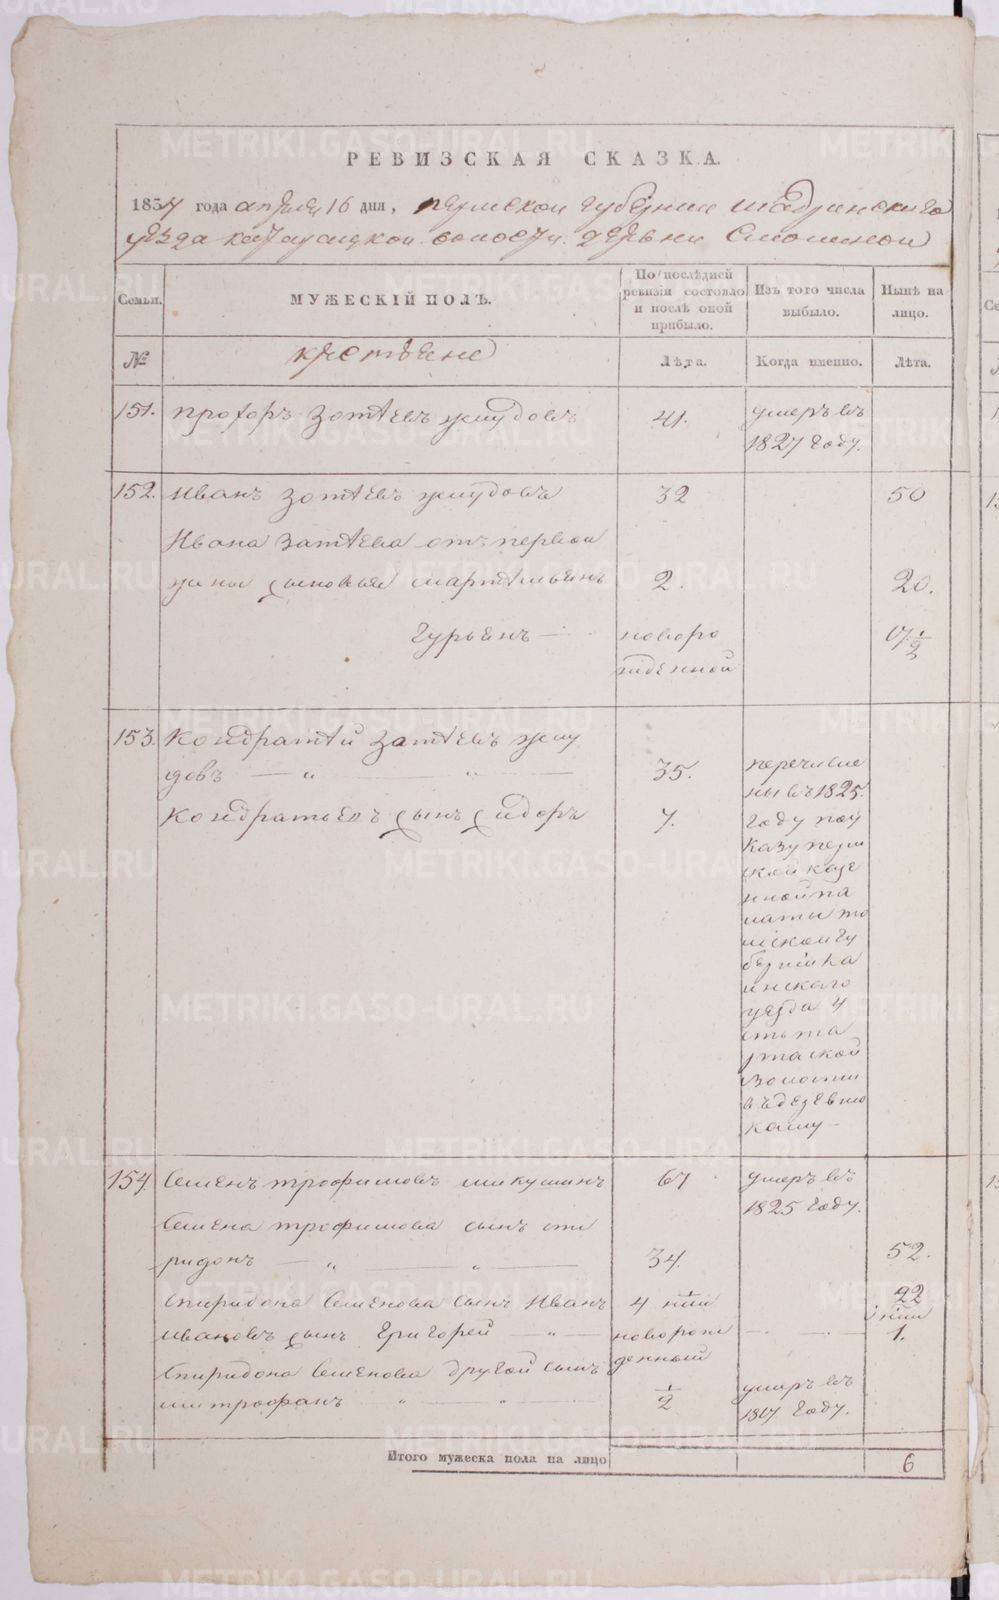 РЕВИЗСКАЯ СКАЗКА.
1834 года апреля 16 дня, Пермской губернии Шадринскаго
уезда Катайской волости деревни
Семьи.
МУЖЕСКІЙ ПОЛЪ.
По послѣдней ревизіи состояло и послѣ оной прибыло.
Изъ того числа выбыло.
Нынѣ на лицо.
№
крестьяне
Лѣта.
Когда именно.
Лѣта.
151. Прохоръ Зотѣевъ Жмудовъ 41. умеръ въ
1827 году.
152. Иванъ Зотѣевъ Жмудовъ 32 50
Ивана Затѣева отъ первой
жены сыновья Мартемьянъ 2. 20.
Гурьянъ новоро 17 1/2
жденной
153. Кондратей Затѣевъ Жму
довъ — „ — „ — 35. перечисле
ны въ 1825.
Кондратьевъ сынъ Сидоръ 7. году по у
казу перм
ской казе
нной па
латы то
мской гу
берніи Ка
инскаго
уезда У
стьта
ртаской
волости
въ деревню
154. Семенъ Трофимовъ Микушинъ 67 умеръ въ
1825 году.
Семена Трофимова сынъ Спи
ридонъ — „ — „ — 34. 52.
Спиридона Семенова сынъ Иванъ 4 22
Ивановъ сынъ Григорей — „ — новорож 1.
денный
Спиридона Семенова другой сынъ
Митрофанъ „ — „ — 1/2 умеръ въ
1817 году.
Итого мужеска пола на лицо 6
METRIKI.GASO-URAL.RU